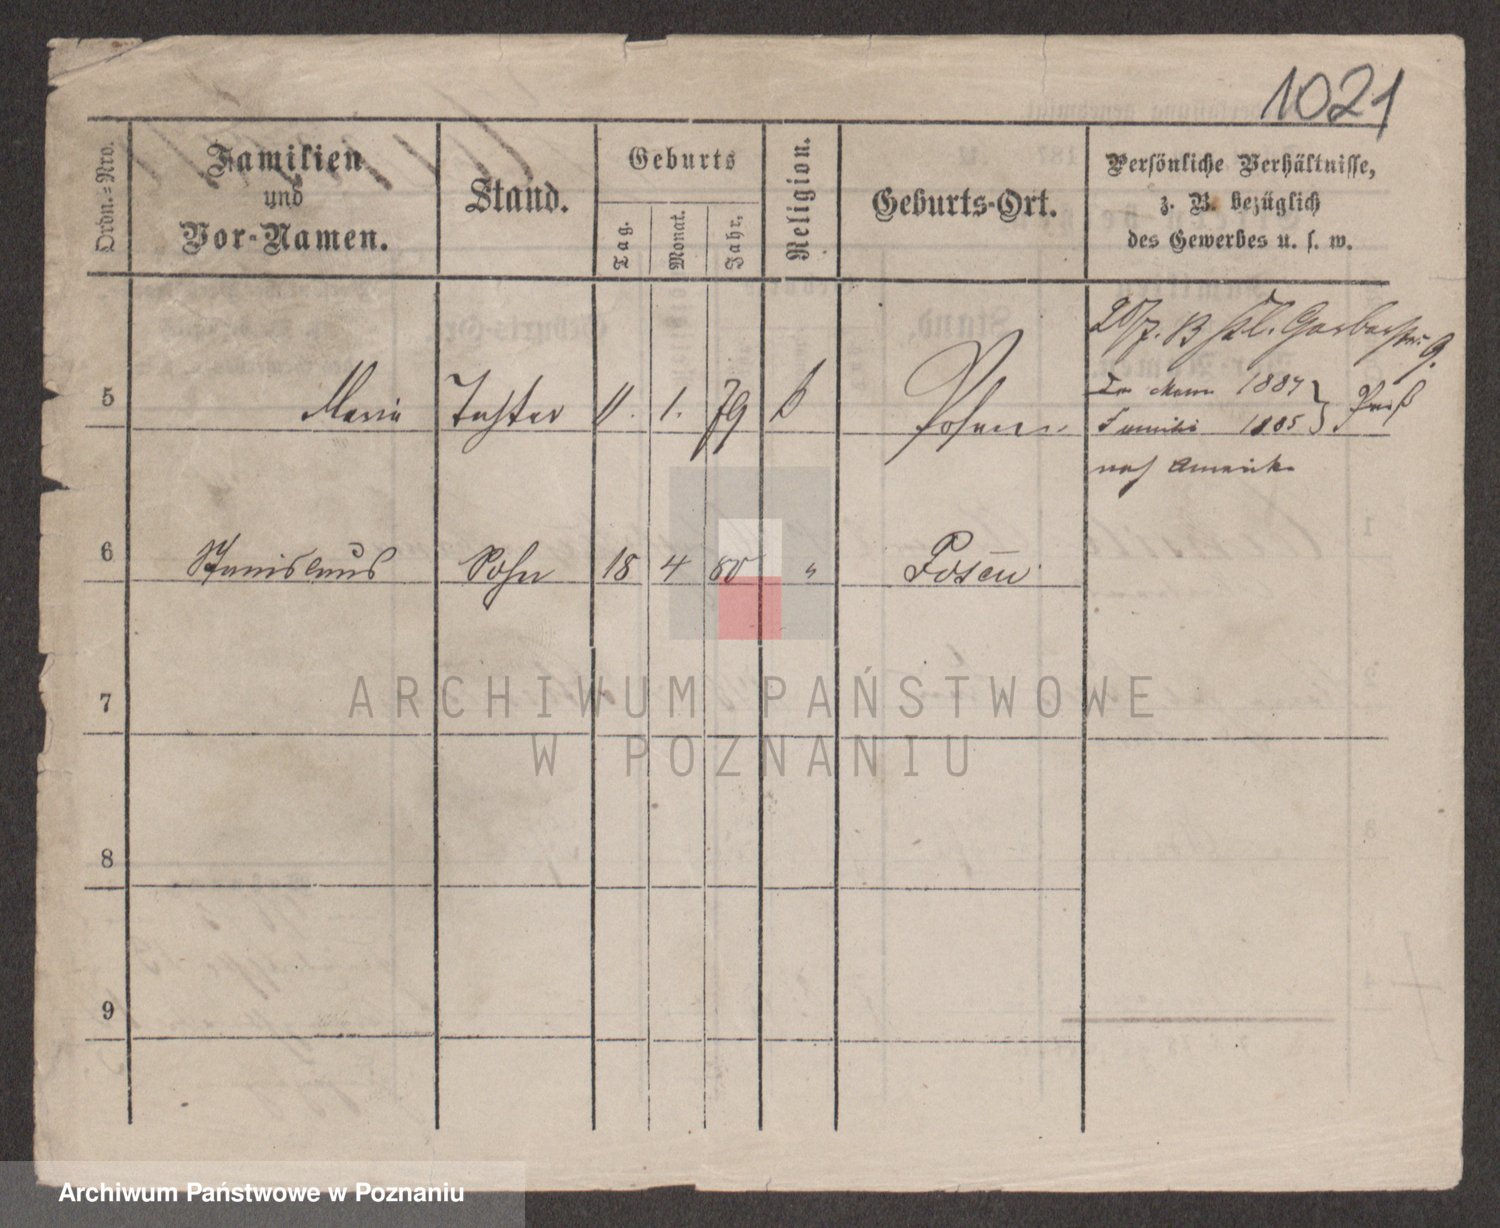 1021
Ordn.=Nro.
Familien
und
Vor-Namen.
Stand.
Geburts
Tag.
Monat.
Jahr.
Religion.
Geburts-Ort.
Persönliche Verhältnisse,
z. B. bezüglich
des Gewerbes u. s. w.
20/7. 83
9.
5 Maria Tochter 11. 1. 79 Posen
1884
Familie 1885
nach Amerika
6 Stanislaus Sohn 18 4 80 " Posen
7
8
9
ARCHIWUM PAŃSTWOWE
W POZNANIU
Archiwum Państwowe w Poznaniu